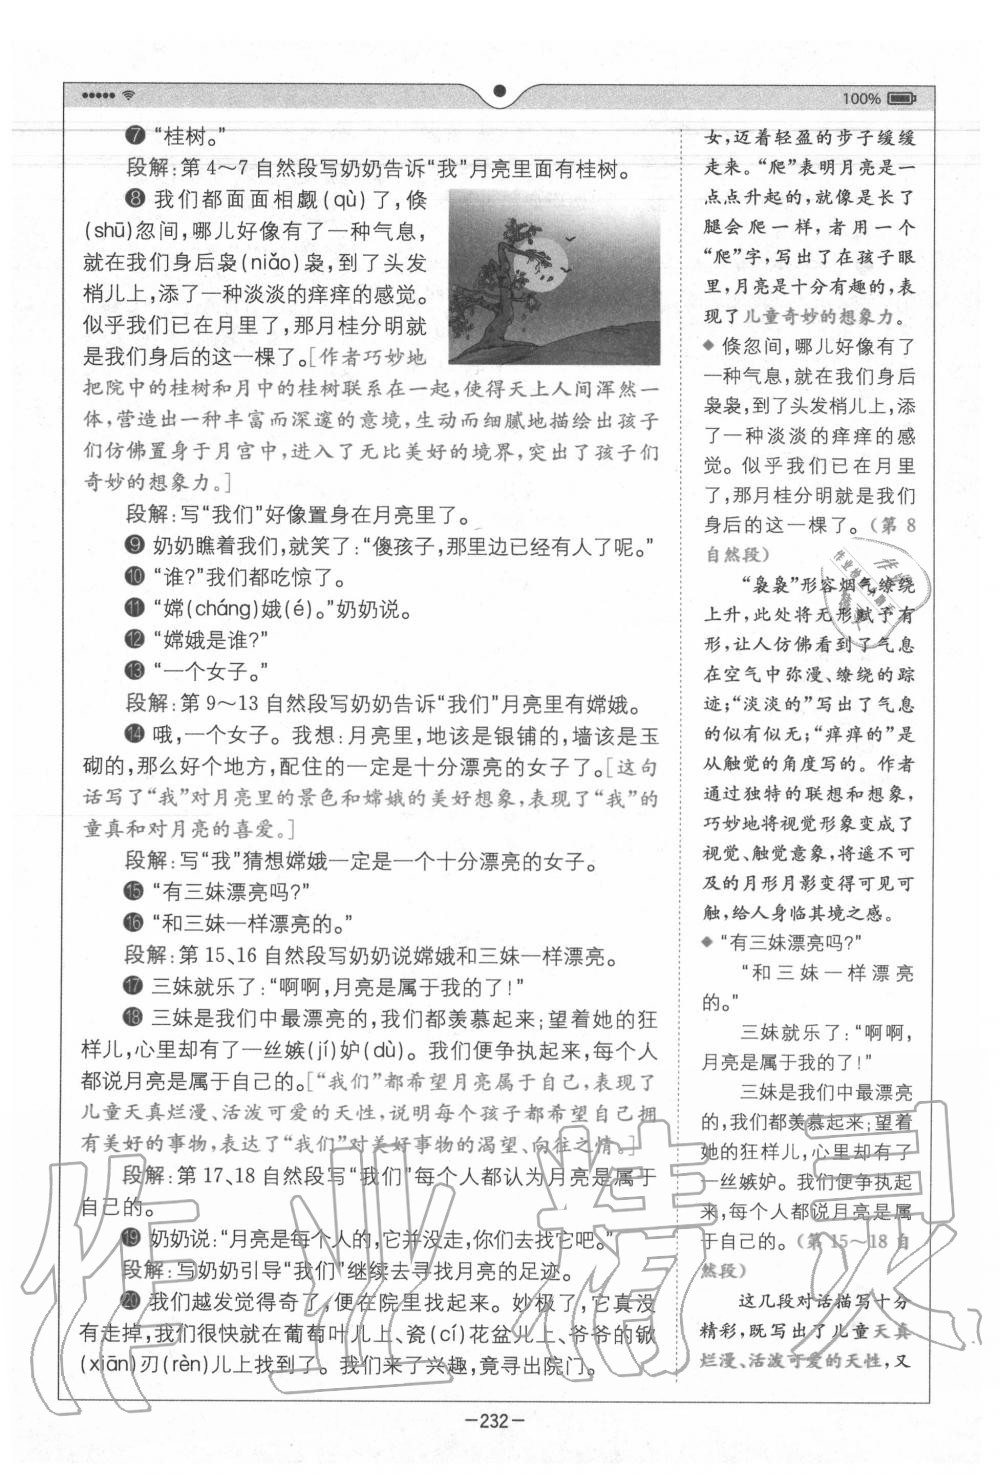 100%
❼ “桂树。”
段解:第 4～7 自然段写奶奶告诉“我”月亮里面有桂树。
❽ 我们都面面相觑(qù)了,倏
(shū)忽间,哪儿好像有了一种气息,
就在我们身后袅(niǎo)袅,到了头发
梢儿上,添了一种淡淡的痒痒的感觉。
似乎我们已在月里了,那月桂分明就
是我们身后的这一棵了。[作者巧妙地
把院中的桂树和月中的桂树联系在一起,使得天上人间浑然一
体,营造出一种丰富而深邃的意境,生动而细腻地描绘出孩子
们仿佛置身于月宫中,进入了无比美好的境界,突出了孩子们
奇妙的想象力。]
段解:写“我们”好像置身在月亮里了。
❾ 奶奶瞧着我们,就笑了:“傻孩子,那里边已经有人了呢。”
❿ “谁?”我们都吃惊了。
⓫ “嫦(cháng)娥(é)。”奶奶说。
⓬ “嫦娥是谁?”
⓭ “一个女子。”
段解:第 9～13 自然段写奶奶告诉“我们”月亮里有嫦娥。
⓮ 哦,一个女子。我想:月亮里,地该是银铺的,墙该是玉
砌的,那么好个地方,配住的一定是十分漂亮的女子了。[这句
话写了“我”对月亮里的景色和嫦娥的美好想象,表现了“我”的
童真和对月亮的喜爱。]
段解:写“我”猜想嫦娥一定是一个十分漂亮的女子。
⓯ “有三妹漂亮吗?”
⓰ “和三妹一样漂亮的。”
段解:第 15、16 自然段写奶奶说嫦娥和三妹一样漂亮。
⓱ 三妹就乐了:“啊啊,月亮是属于我的了!”
⓲ 三妹是我们中最漂亮的,我们都羡慕起来;望着她的狂
样儿,心里却有了一丝嫉(jí)妒(dù)。我们便争执起来,每个人
都说月亮是属于自己的。[“我们”都希望月亮属于自己,表现了
儿童天真烂漫、活泼可爱的天性,说明每个孩子都希望自己拥
有美好的事物,表达了“我们”对美好事物的渴望、向往之情。]
段解:第 17、18 自然段写“我们”每个人都认为月亮是属于
自己的。
⓳ 奶奶说:“月亮是每个人的,它并没走,你们去找它吧。”
段解:写奶奶引导“我们”继续去寻找月亮的足迹。
⓴ 我们越发觉得奇了,便在院里找起来。妙极了,它真没
有走掉,我们很快就在葡萄叶儿上、瓷(cí)花盆儿上、爷爷的锨
(xiān)刃(rèn)儿上找到了。我们来了兴趣,竟寻出院门。
女,迈着轻盈的步子缓缓
走来。“爬”表明月亮是一
点点升起的,就像是长了
腿会爬一样,者用一个
“爬”字,写出了在孩子眼
里,月亮是十分有趣的,表
现了儿童奇妙的想象力。
◆ 倏忽间,哪儿好像有了
一种气息,就在我们身后
袅袅,到了头发梢儿上,添
了一种淡淡的痒痒的感
觉。似乎我们已在月里
了,那月桂分明就是我们
身后的这一棵了。(第 8
自然段)
“袅袅”形容烟气缭绕
上升,此处将无形赋予有
形,让人仿佛看到了气息
在空气中弥漫、缭绕的踪
迹;“淡淡的”写出了气息
的似有似无;“痒痒的”是
从触觉的角度写的。作者
通过独特的联想和想象,
巧妙地将视觉形象变成了
视觉、触觉意象,将遥不可
及的月形月影变得可见可
触,给人身临其境之感。
◆ “有三妹漂亮吗?”
“和三妹一样漂亮
的。”
三妹就乐了:“啊啊,
月亮是属于我的了!”
三妹是我们中最漂亮
的,我们都羡慕起来;望着
她的狂样儿,心里却有了
一丝嫉妒。我们便争执起
来,每个人都说月亮是属
于自己的。(第 15～18 自
然段)
这几段对话描写十分
精彩,既写出了儿童天真
烂漫、活泼可爱的天性,又
作业精灵
-232-